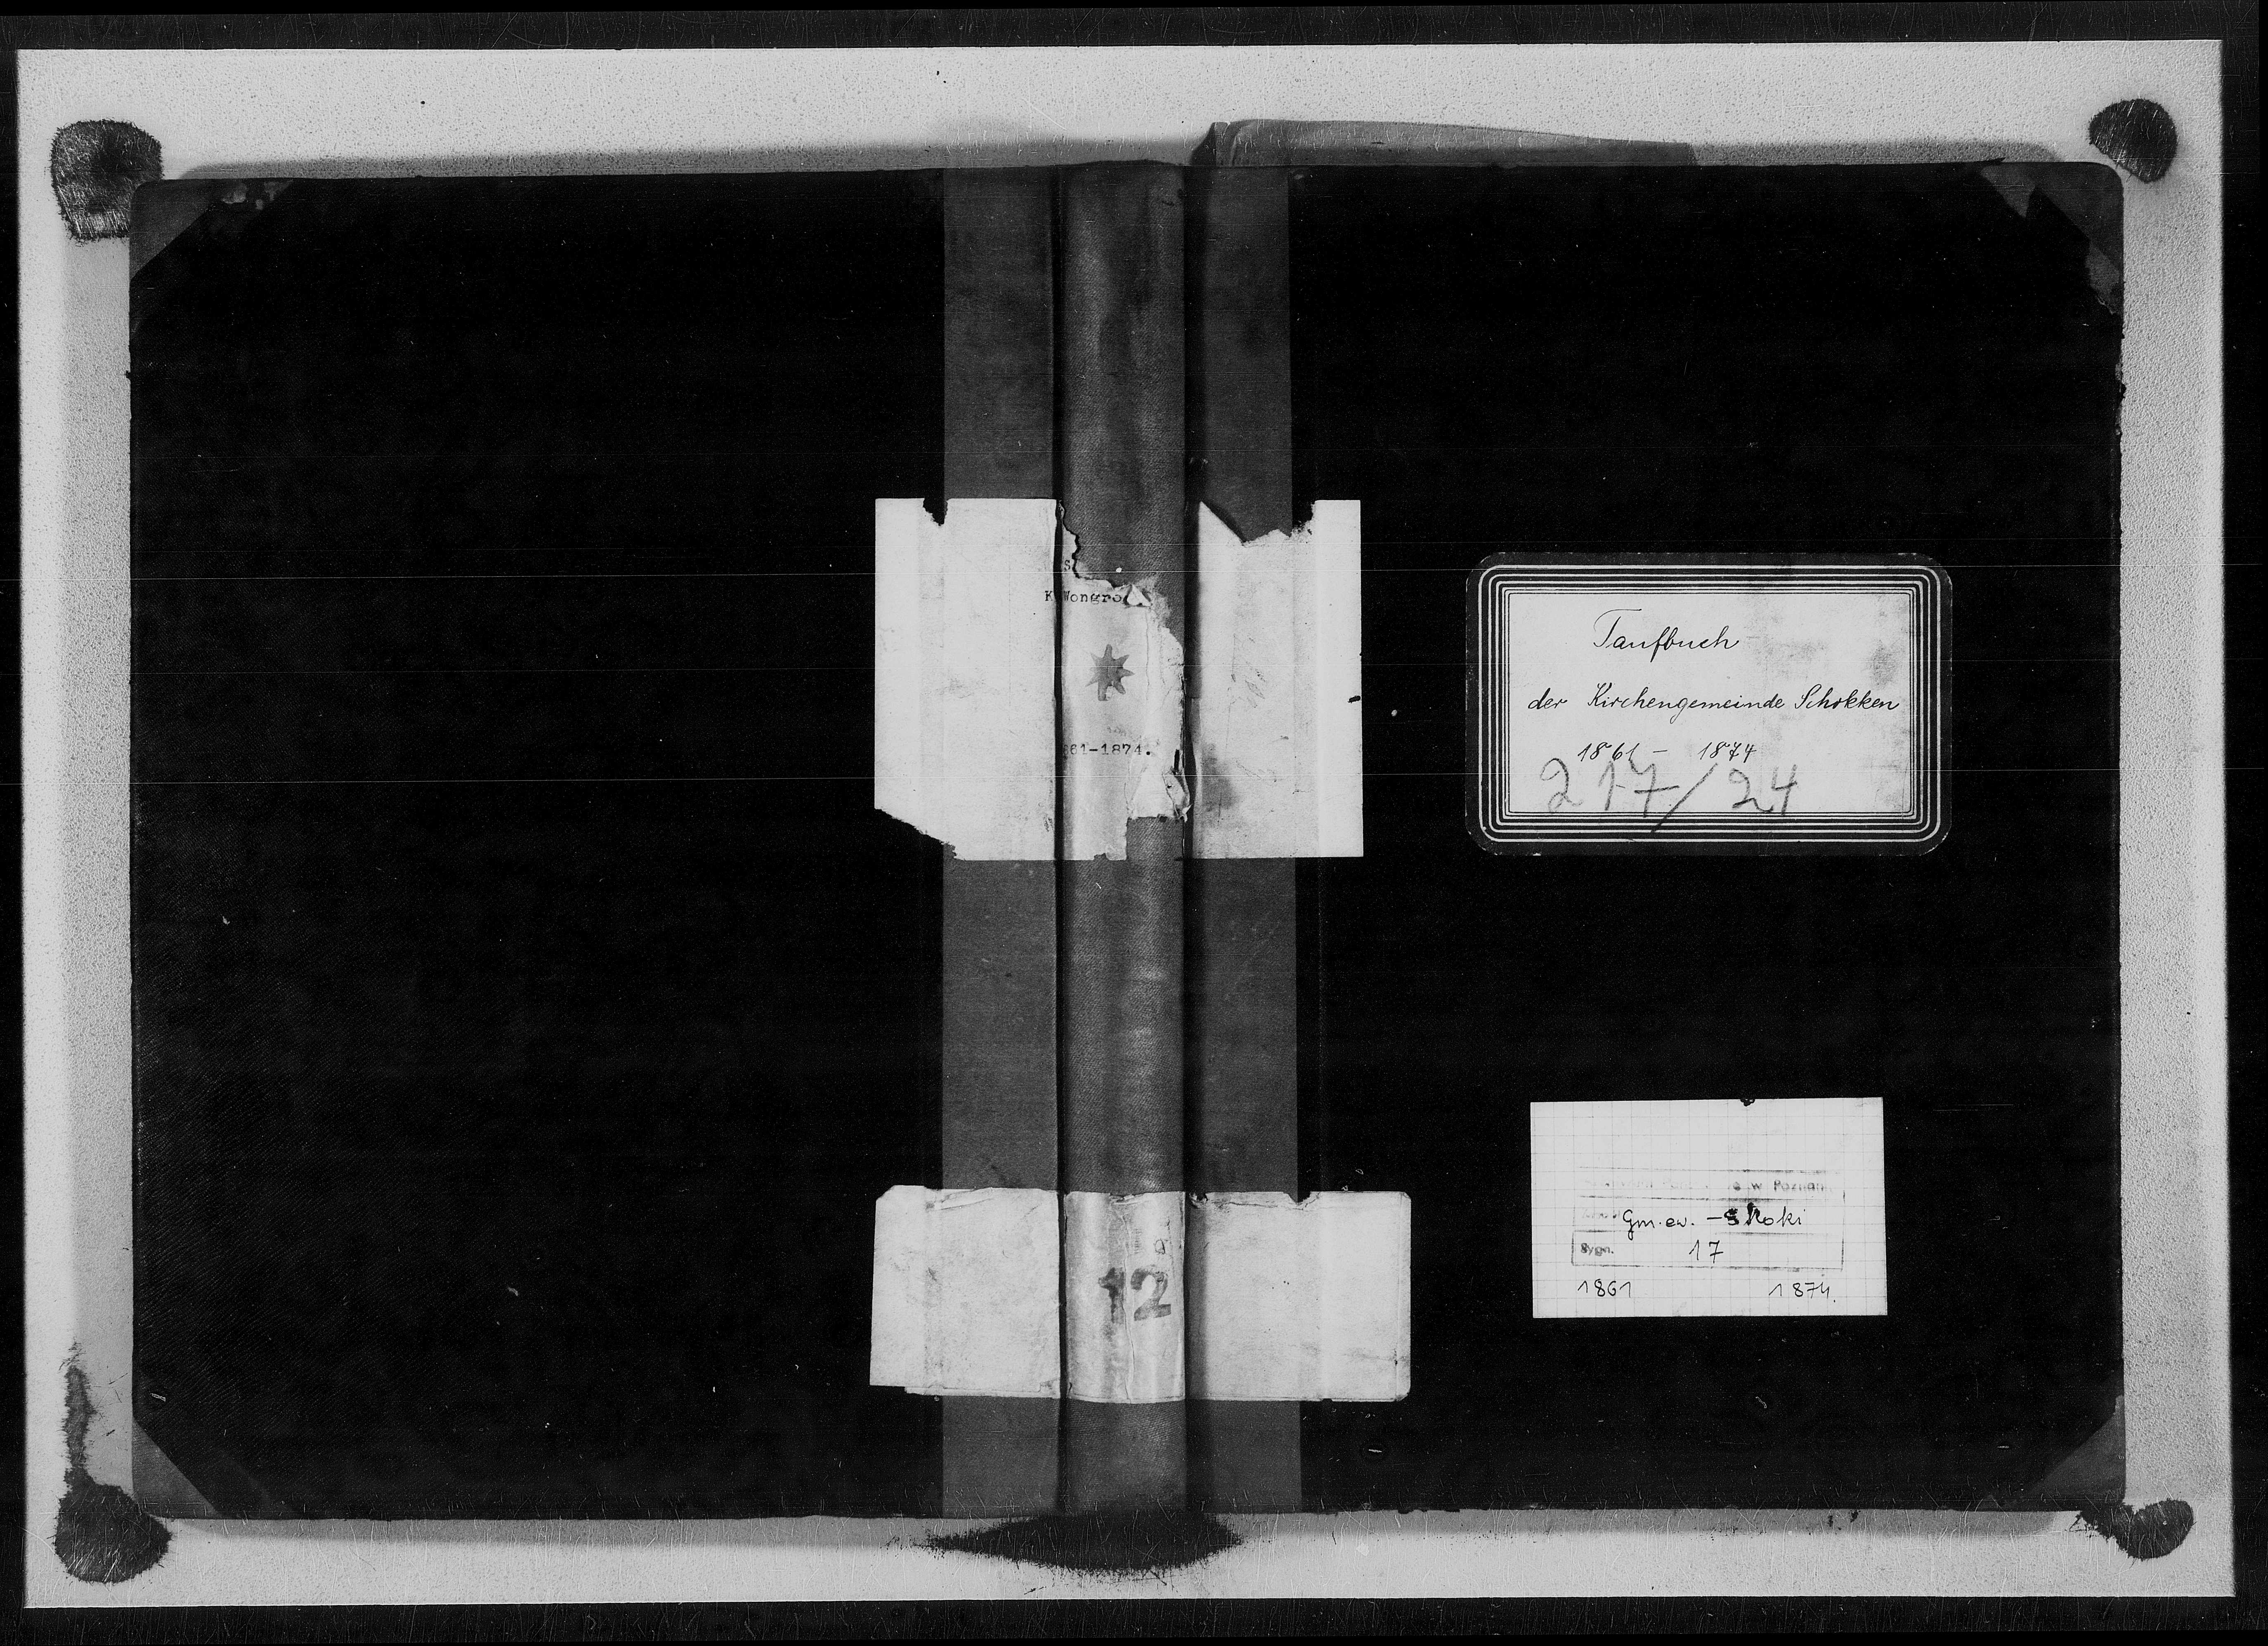 61-1874.
12
Taufbuch
der Kirchengemeinde Schokken
1861 - 1874
217/24
w Poznani
Gm. ew. - Skoki
Sygn. 17
1861 1874.